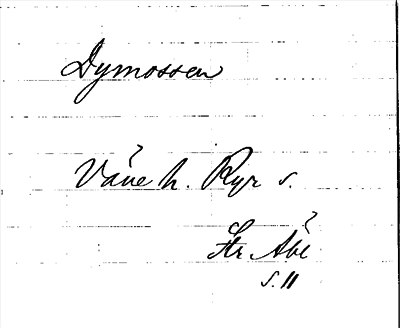 Dymossen
Väne h. Ryr s.
s. 11